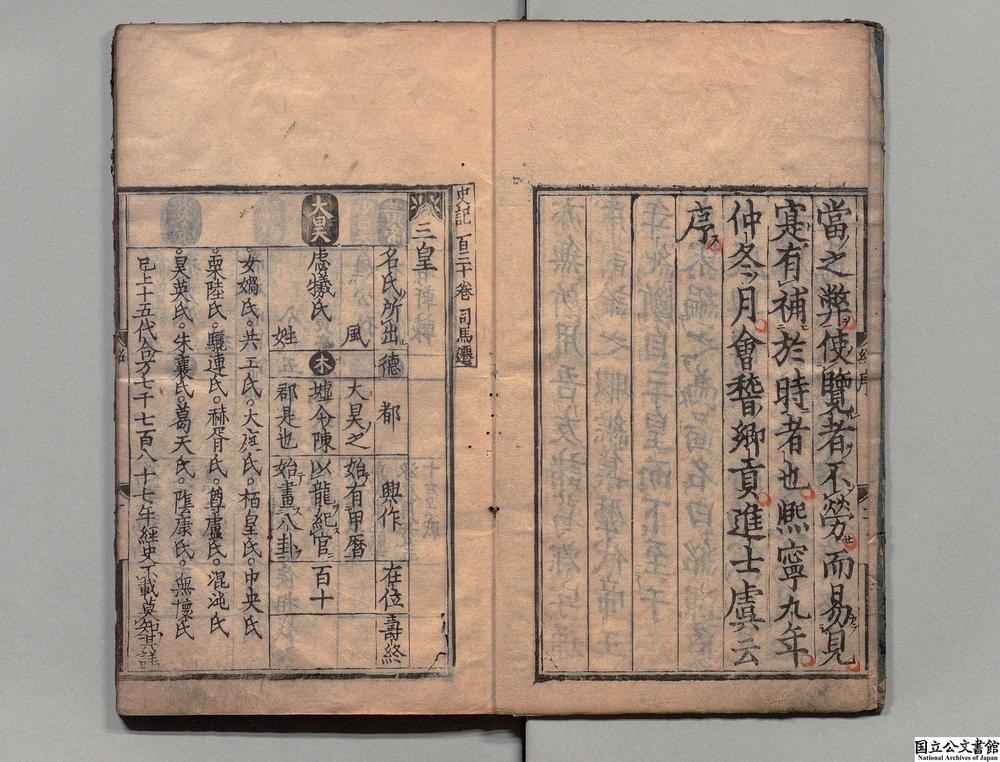 當之弊使覽者不勞而易見
寔有補於時者也熙寧九年
仲冬月會嵇卿貢進士虞云
序
史記 百三十卷 司馬遷
三皇
名氏所出 德 都 興作 在位 壽終
大昊
虙犧氏
風姓
木
大昊之
墟今陳
郡是也
始有甲曆
以龍紀官
始畫八卦
百十
女媧氏。共工氏。大庭氏。栢皇氏。中央氏
栗陸氏。驪連氏。赫胥氏。尊盧氏。混沌氏
昊英氏。朱襄氏。葛天氏。陰康氏。無懷氏
已上十五代合万七千七百八十七年經史不載莫知其詳
国立公文書館
National Archives of Japan